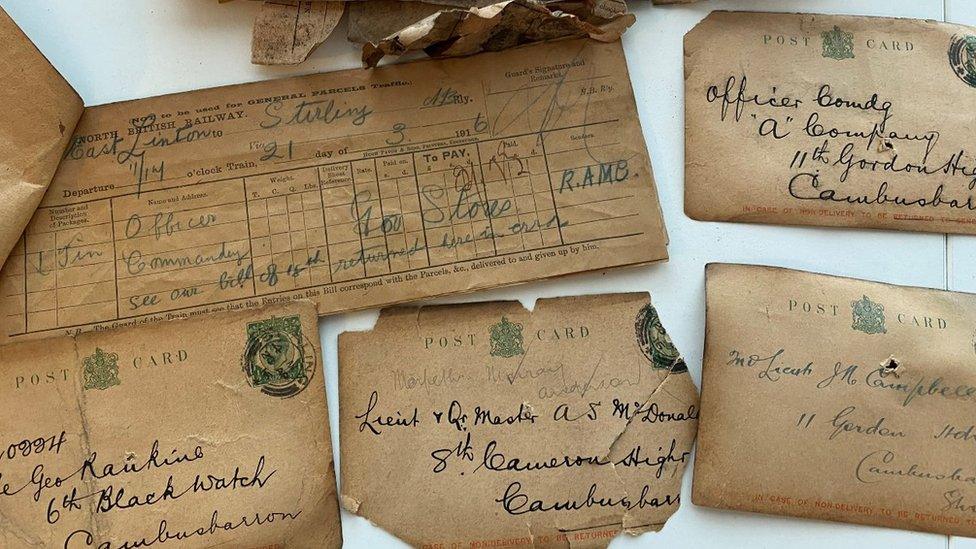 Not to be used for GENERAL PARCELS Traffic.
NORTH BRITISH RAILWAY.
East Linton to Stirling
Via
N.B. Rly.
Guard's Signature and
Remarks.
N.B. Rly.
Departure 7/17 o'clock Train, 21 day of 3 1916
Number and
Description
of Packages.
Name and Address.
Weight.
T. C. Q. Lbs.
Delivery
Sheet
Reference.
Rate.
Paid on.
s. d.
To PAY.
s. d.
Paid.
s. d.
Senders.
1 Tin
Officer
Commandg
Gov Stores
R.A.M.B.
see our bill of 18th returned here in error
N.B. The Guard of the Train must see that the Entries on this Bill correspond with the Parcels, &c., delivered to and given up by him.
POST CARD
Officer Comdg
"A" Company
11th Gordon High
Cambusbarr
IN CASE OF NON-DELIVERY TO BE RETURNED TO
POST CARD
Geo Rankine
6th Black Watch
Cambusbarron
POST CARD
Lieut & Qr Master A S McDonal
8th Cameron High
Cambusbarr
IN CASE OF NON-DELIVERY TO BE RETURNED TO
POST CARD
Lieut J R Campbell
11 Gordon
Cambusbar
IN CASE OF NON-DELIVERY TO BE RETURNED TO